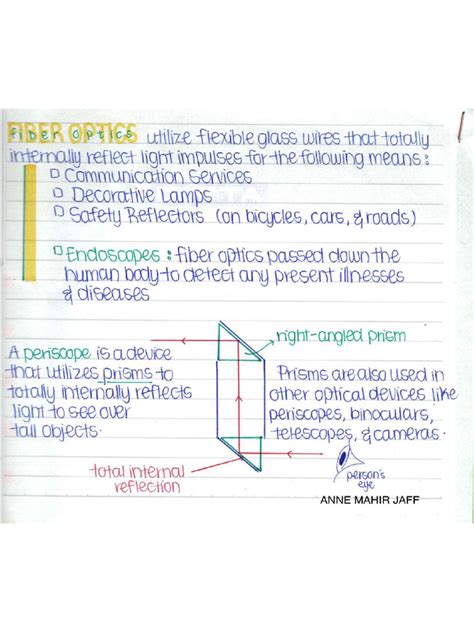 FIBER OPTICS utilize flexible glass wires that totally
internally reflect light impulses for the following means:
Communication Services
Decorative Lamps
Safety Reflectors (on bicycles, cars, & roads)
Endoscopes: fiber optics passed down the
human body to detect any present illnesses
& diseases
right-angled prism
A periscope is a device
that utilizes prisms to
totally internally reflects
light to see over
tall objects.
Prisms are also used in
other optical devices like
periscopes, binoculars,
telescopes, & cameras.
total internal
reflection
person's
eye
ANNE MAHIR JAFF